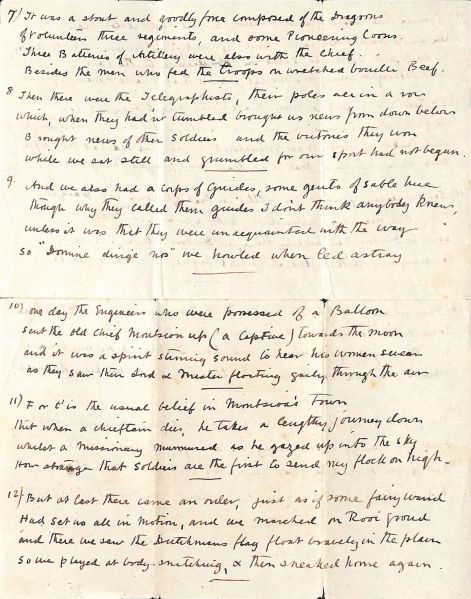 7) It was a stout and goodly force composed of the Dragoons
of Volunteers three regiments, and some Pioneering Coons.
Three Batteries of Artillery were also with the Chief.
Besides the men who fed the troops on wretched bouilli Beef.
8 Then there were the Telegraphists, their poles all in a row
which, when they had'nt tumbled brought us news from down below
Brought news of other Soldiers and the victories they won
while we sat still and grumbled for our sport had not begun.
9. And we also had a Corps of Guides, some gents of sable hue
though why they called them guides I don't think anybody knew,
unless it was that they were unacquainted with the way
So "Domine dirige nos" we howled when led astray
10) One day the Engineers who were possessed of a Balloon
sent the old Chief Montsion up (a Captive) towards the moon
and it was a spirit stirring sound to hear his women swear
as they saw their Lord & Master floating gaily through the air
11) For t'is the usual belief in Montsioa's Town
that when a chieftain dies, he takes a lengthy journey down
whilst a Missionary murmured as he gazed up into the sky
How strange that Soldiers are the first to send my flock on high.
12) But at last there came an order, just as if some fairy wand
Had set us all in motion, and we marched on Rooi Grond
and there we saw the Dutchmans flag float bravely in the plain
so we played at body snatching, & then sneaked home again.